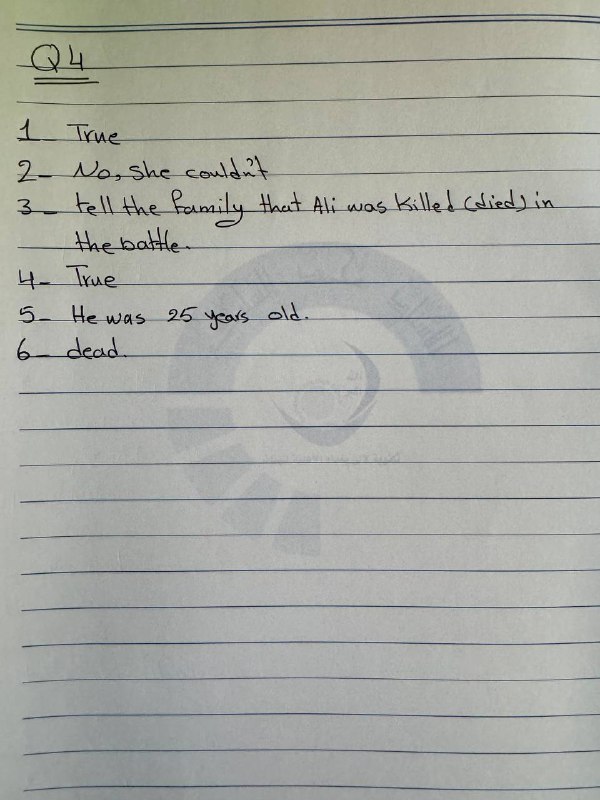 Q4
1_ True
2_ No, she couldn't
3_ tell the family that Ali was killed (died) in
the battle.
4_ True
5_ He was 25 years old.
6_ dead.